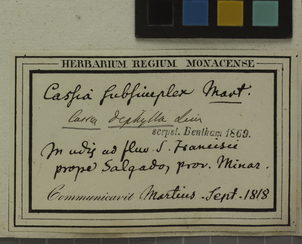 HERBARIUM REGIUM MONACENSE
Cassia subsimplex Mart.
Cassia diphylla Linn
scrpst. Bentham 1869.
In udis ad fluv. S. Francisci
prope Salgado, prov. Minar.
Communicavit Martius. Sept. 1818